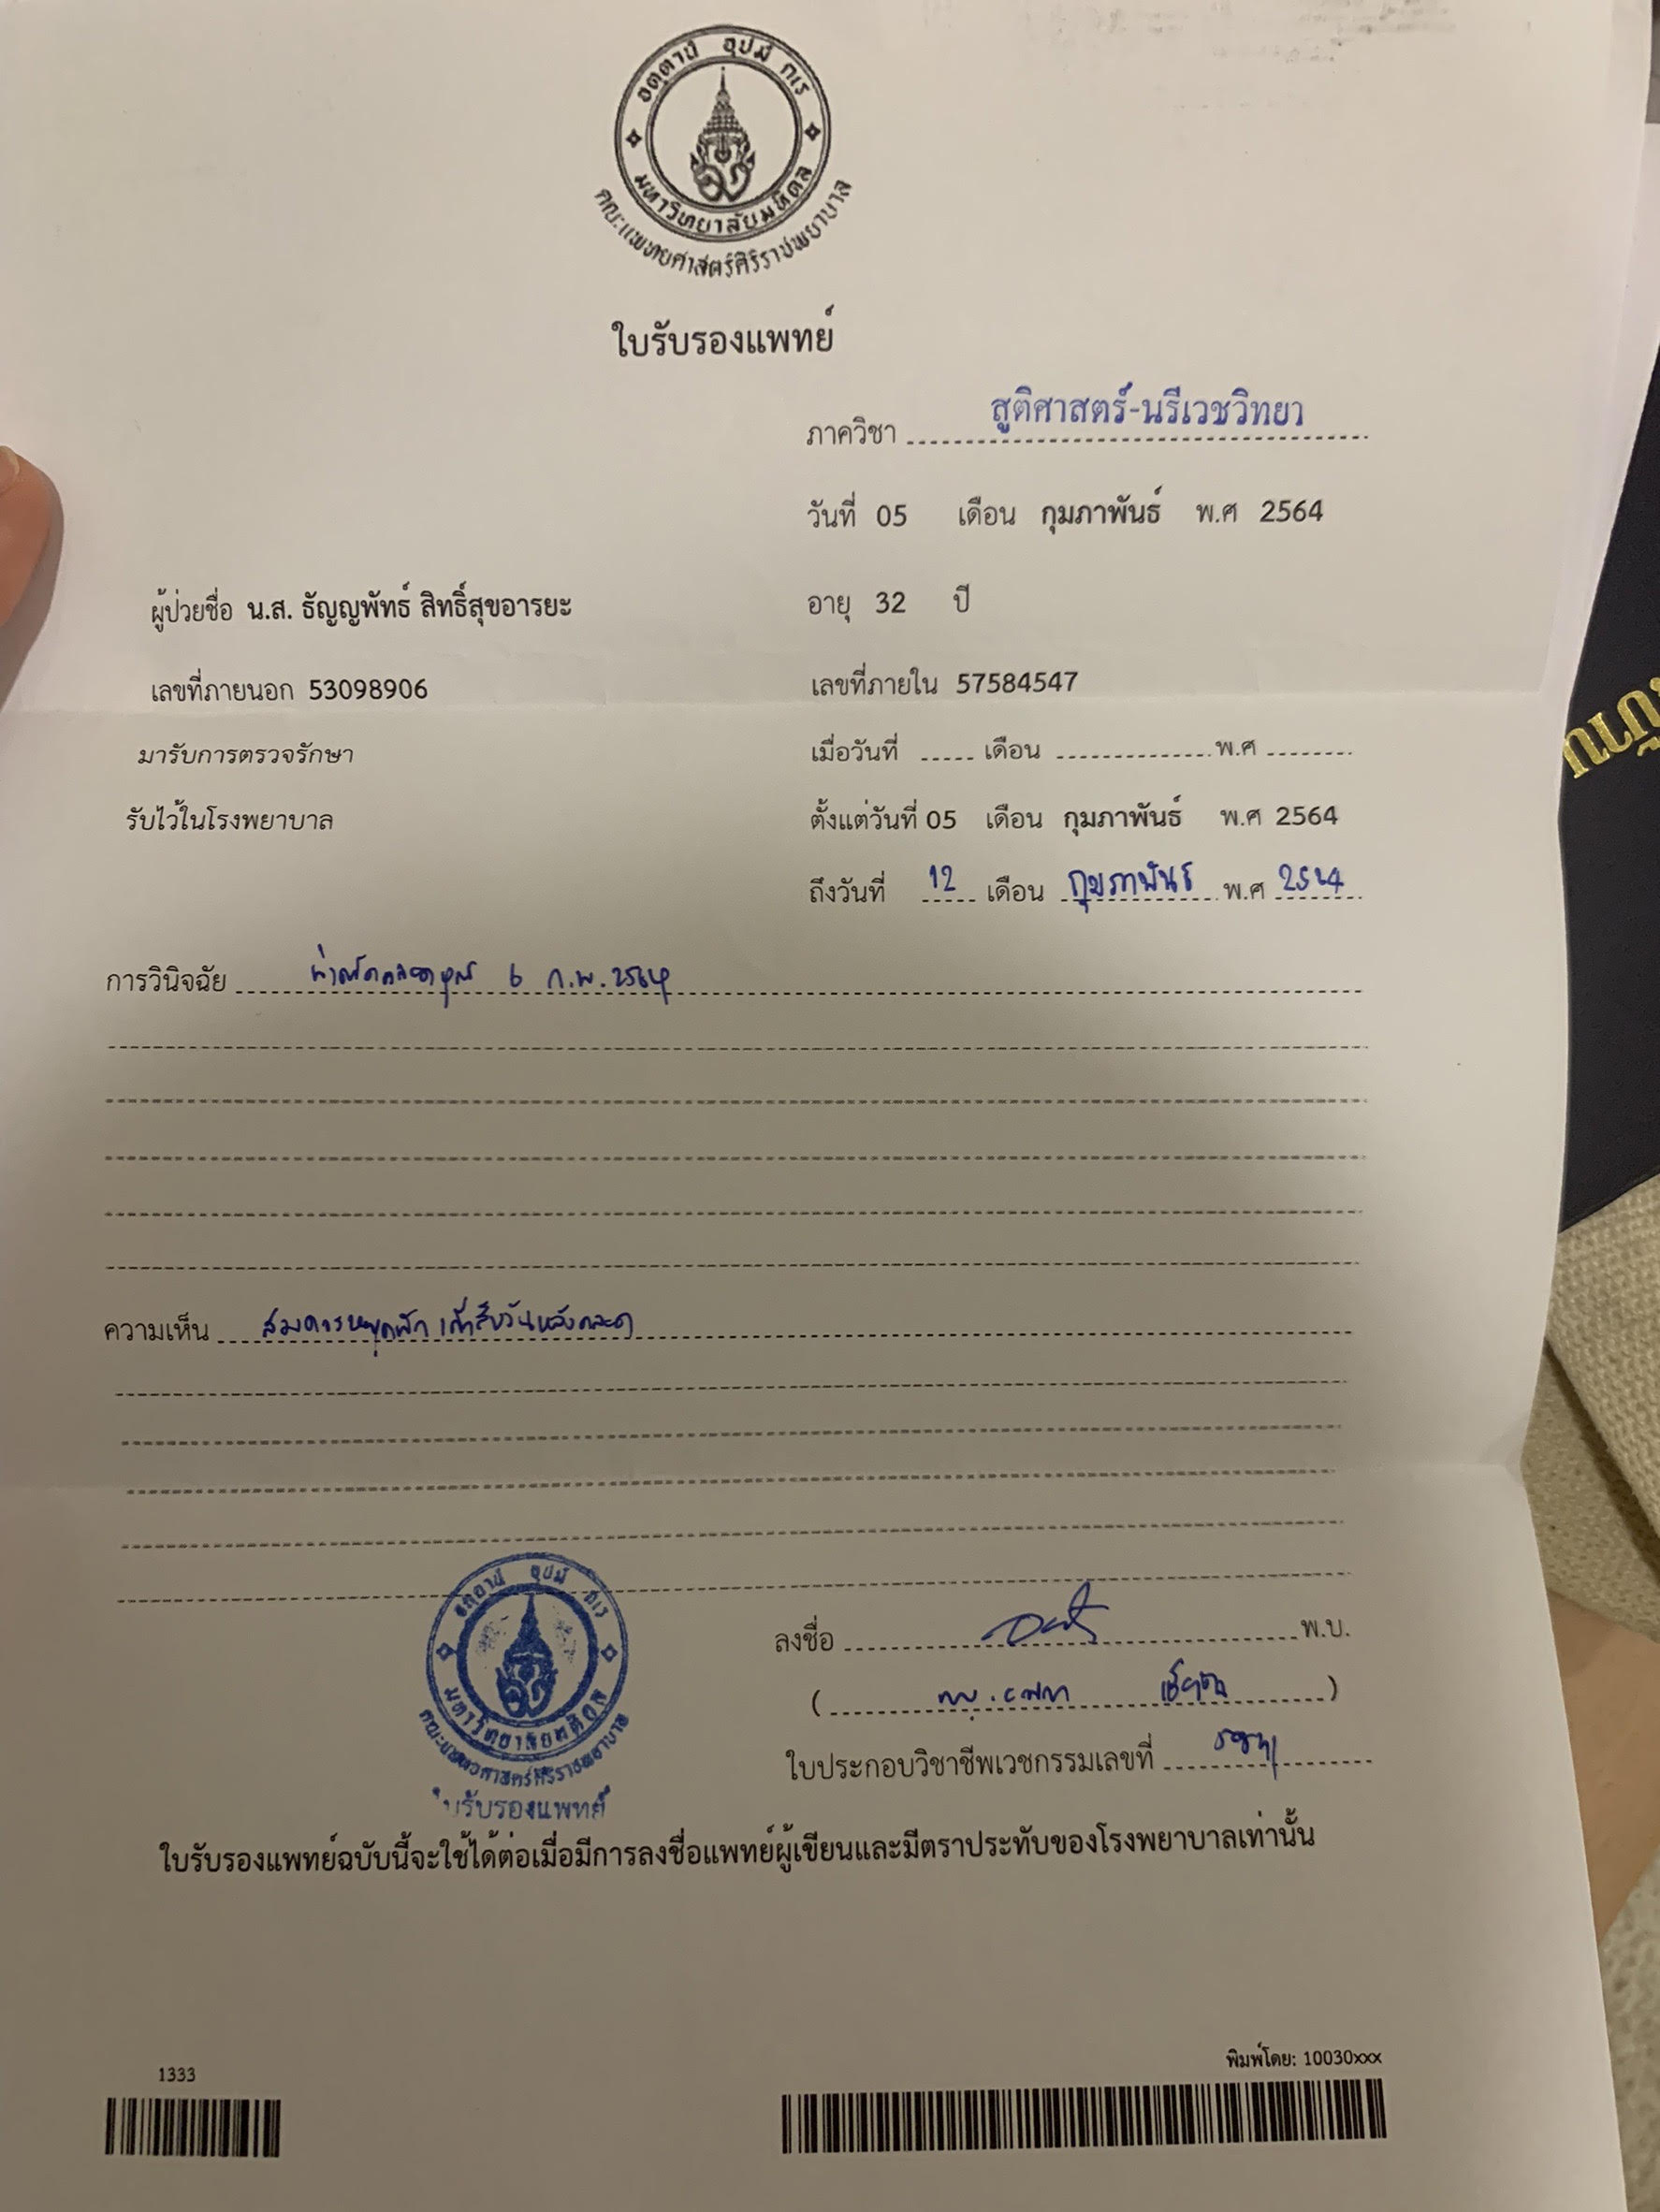 อตฺตานํ อุปมํ กเร
มหาวิทยาลัยมหิดล
คณะแพทยศาสตร์ศิริราชพยาบาล
ใบรับรองแพทย์
ภาควิชา สูติศาสตร์-นรีเวชวิทยา
วันที่ 05 เดือน กุมภาพันธ์ พ.ศ 2564
ผู้ป่วยชื่อ น.ส. ธัญญพัทธ์ สิทธิ์สุขอารยะ อายุ 32 ปี
เลขที่ภายนอก 53098906 เลขที่ภายใน 57584547
มารับการตรวจรักษา เมื่อวันที่ ..... เดือน .............. พ.ศ ........
รับไว้ในโรงพยาบาล ตั้งแต่วันที่ 05 เดือน กุมภาพันธ์ พ.ศ 2564
ถึงวันที่ 12 เดือน กุมภาพันธ์ พ.ศ 2564
การวินิจฉัย ผ่าตัดคลอดบุตร 6 ก.พ. 2564
ความเห็น สมควรหยุดพัก เก้าสิบวันหลังคลอด
อตฺตานํ อุปมํ กเร
มหาวิทยาลัยมหิดล
คณะแพทยศาสตร์ศิริราชพยาบาล
ใบรับรองแพทย์
ลงชื่อ พ.บ.
ใบประกอบวิชาชีพเวชกรรมเลขที่
ใบรับรองแพทย์ฉบับนี้จะใช้ได้ต่อเมื่อมีการลงชื่อแพทย์ผู้เขียนและมีตราประทับของโรงพยาบาลเท่านั้น
1333
พิมพ์โดย: 10030xxx